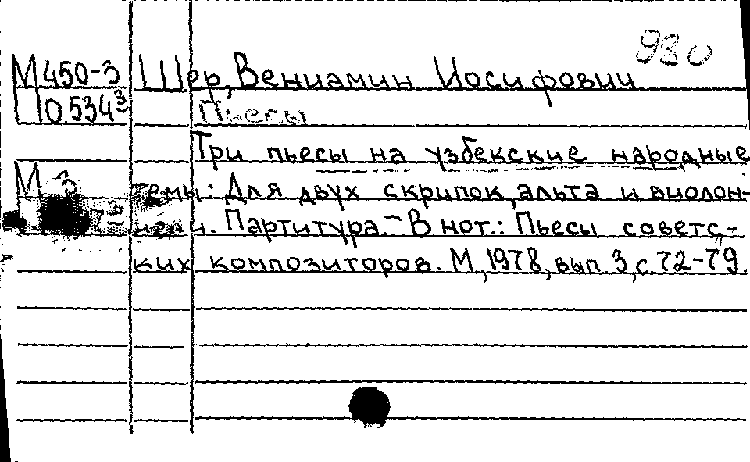 930
М450-3 Шер, Вениамин Иосифович
П0534³ Пьесы
Три пьесы на узбекские народные
М-3 темы: Для двух скрипок, альта и виолон-
чели. Партитура. – В нот.: Пьесы советс-
ких композиторов. М, 1978, вып 3, с. 72-79.